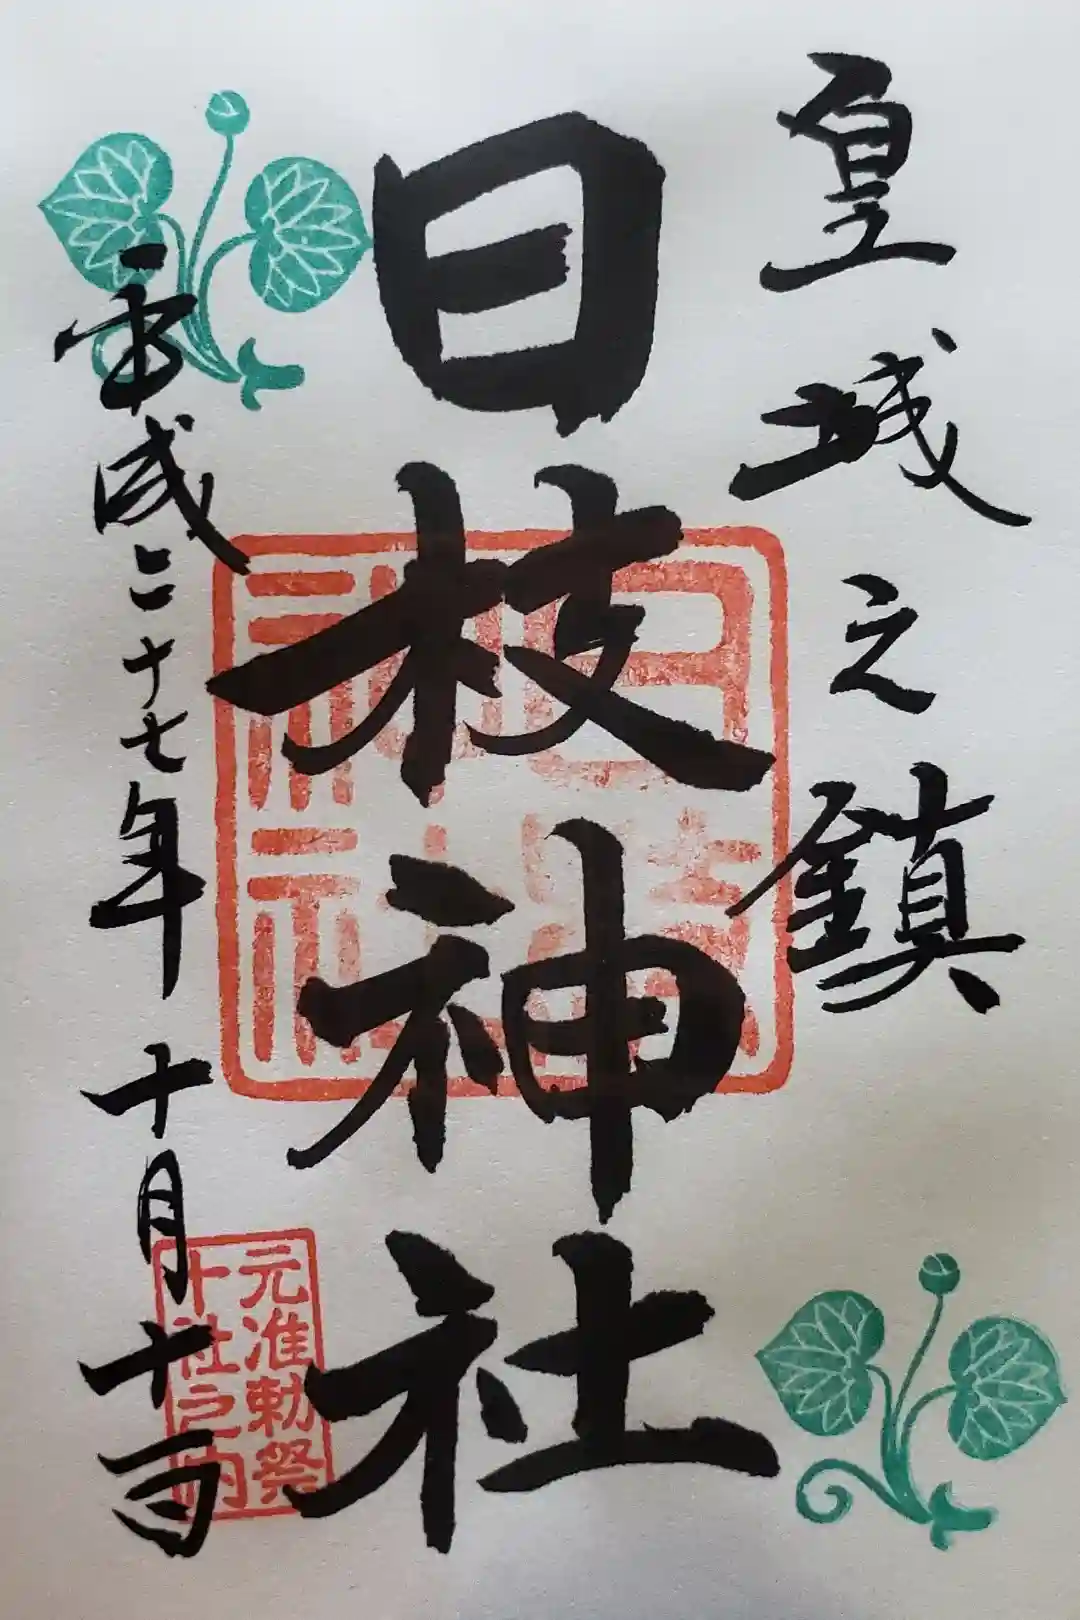 皇城之鎮
日枝神社
平成二十七年 十月十一日
日枝神社
元准勅祭
十社之内